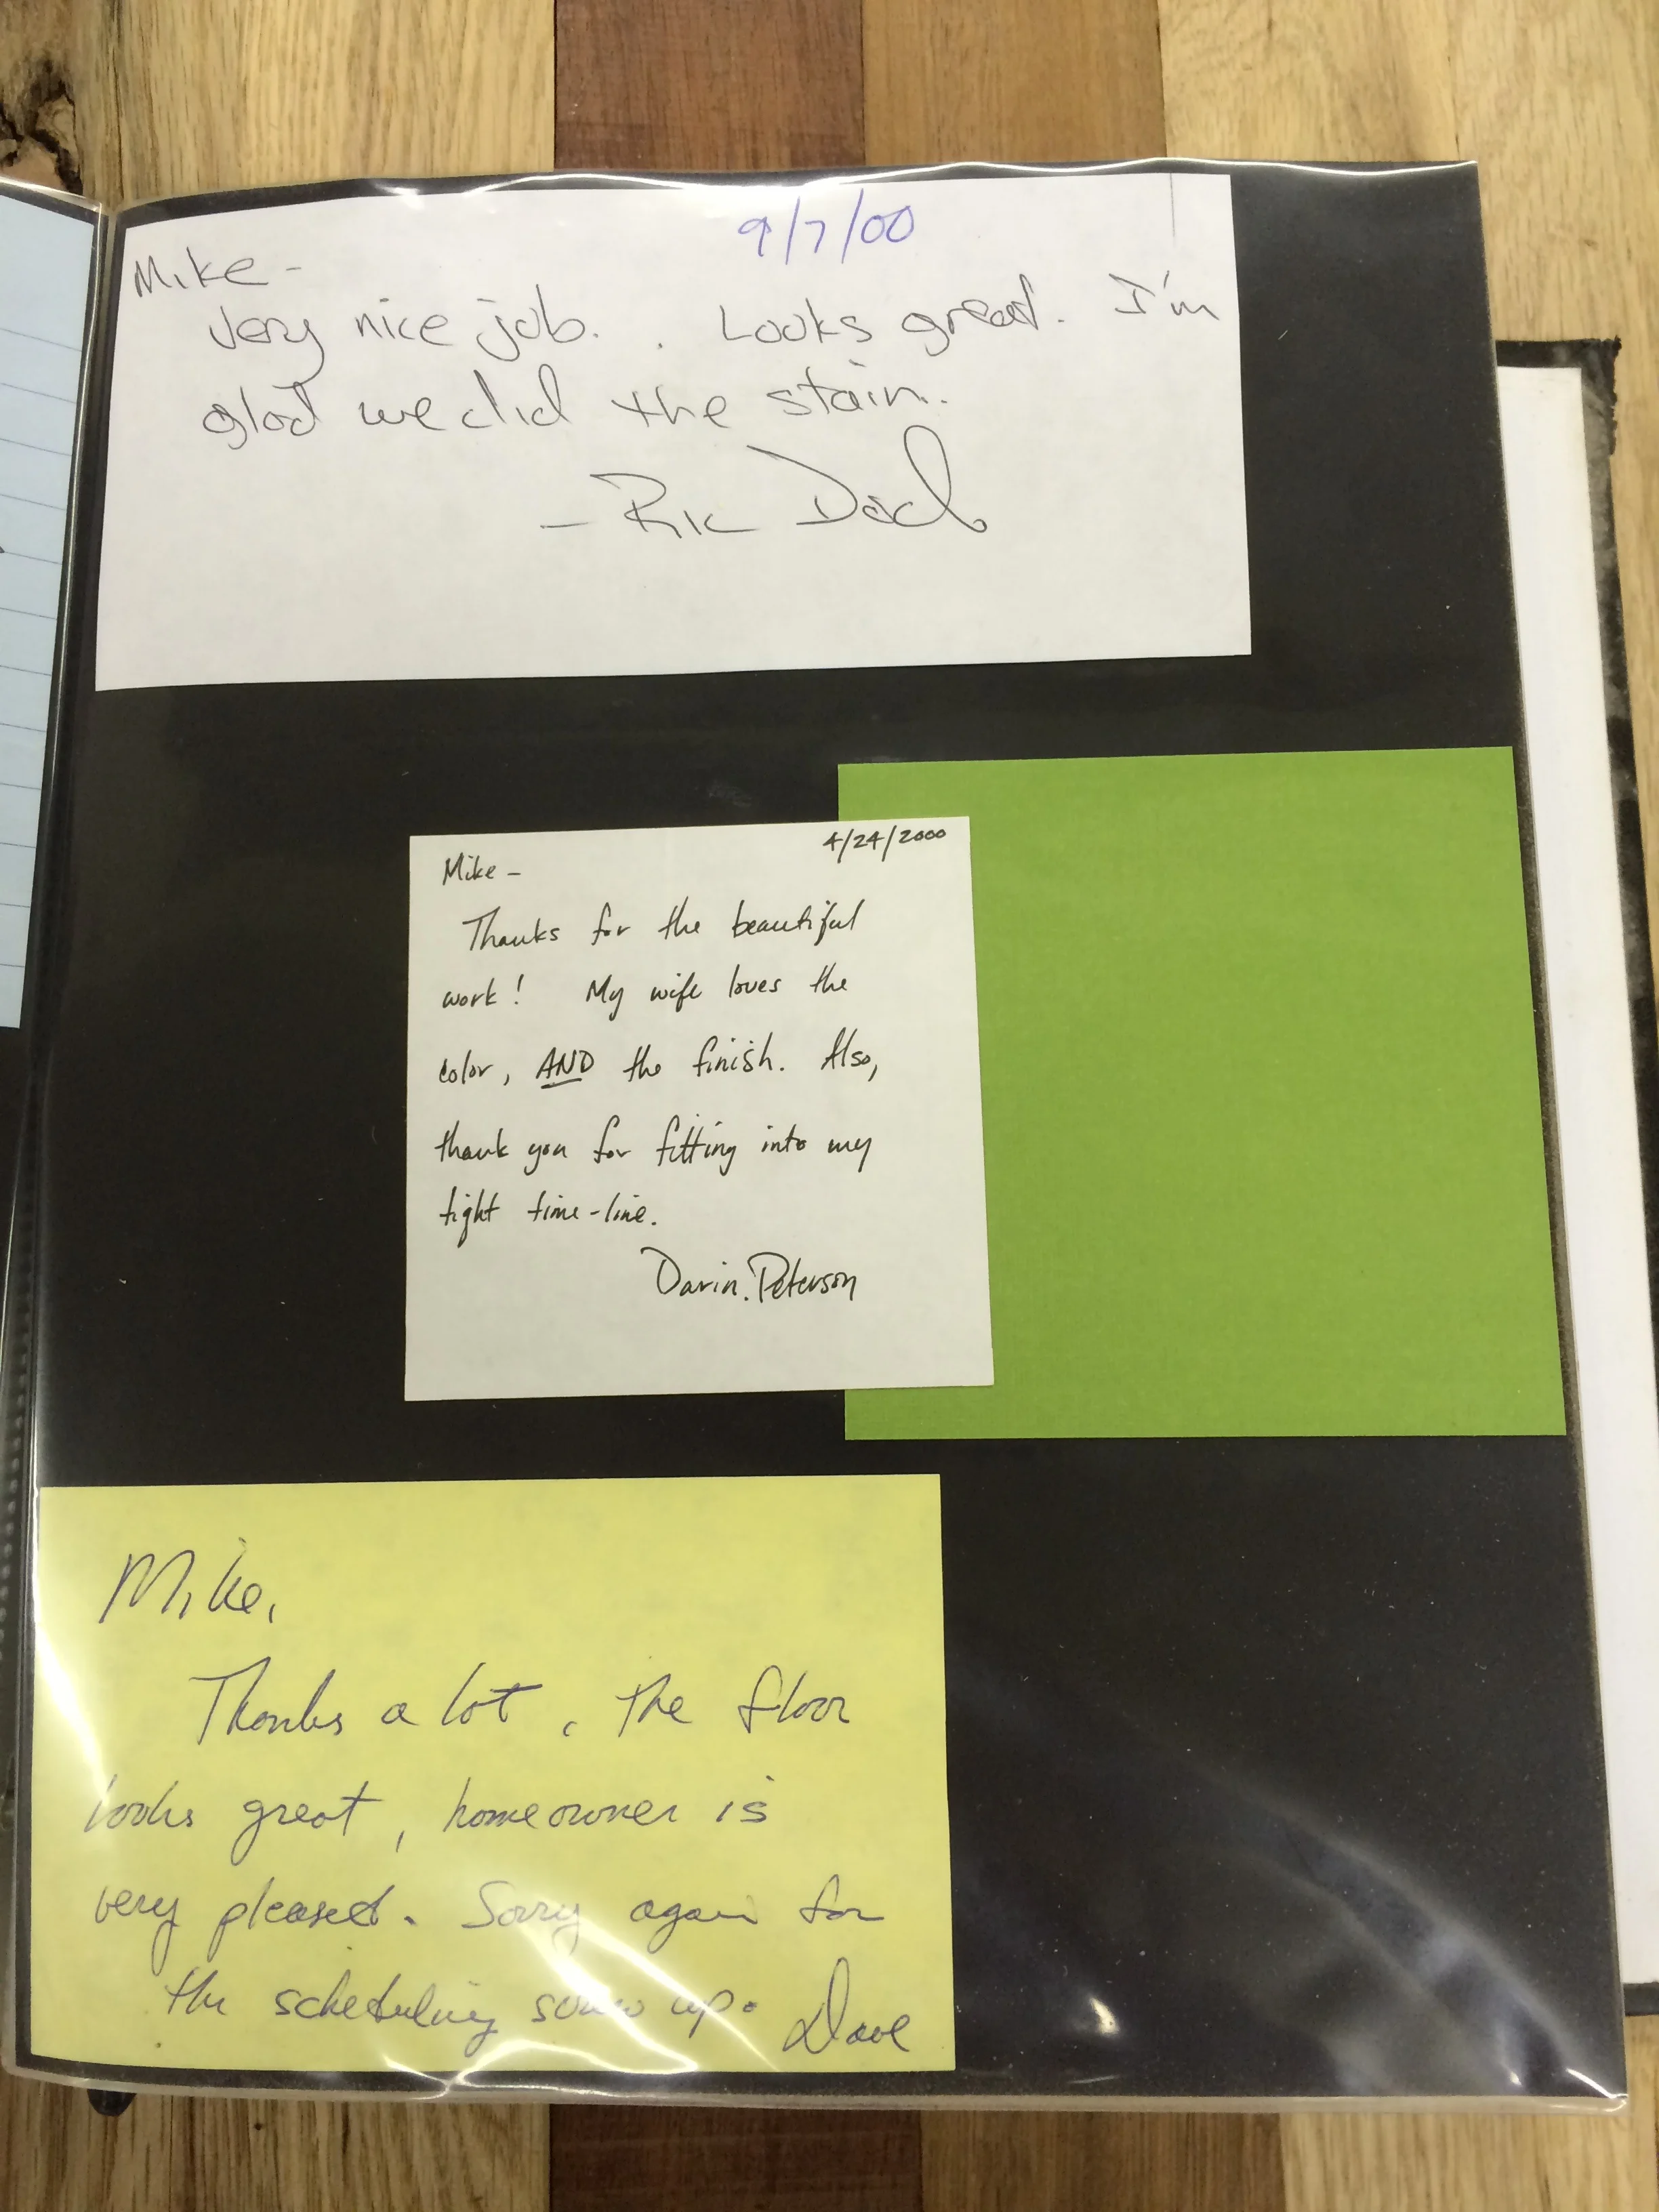 9/7/00
Mike -
Very nice job. . Looks great. I'm
glad we did the stain.
- Ric
4/24/2000
Mike -
Thanks for the beautiful
work! My wife loves the
color, AND the finish. Also,
thank you for fitting into my
tight time-line.
Darin Peterson
Mike,
Thanks a lot, the floor
looks great, homeowner is
very pleased. Sorry again for
the scheduling screw up. Dave